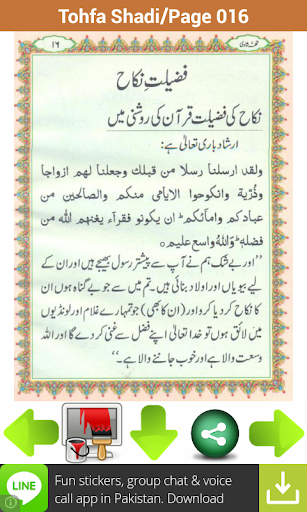 Tohfa Shadi/Page 016
۱۶
تحفۂ شادی
فضیلتِ نکاح
نکاح کی فضیلت قرآن کی روشنی میں
ارشاد باری تعالیٰ ہے:
ولقد ارسلنا رسلا من قبلك وجعلنا لهم ازواجا
وذُرّية وانكحوا الايامى منكم والصالحين من
عبادكم وامآئكم ط ان يكونو فقرآء يغنهم الله من
فضله ط وَاللّٰهُ واسع عليم ○
”اور بے شک ہم نے آپ سے پیشتر رسول بھیجے ہیں اور ان کے
لیے بیویاں اور اولاد بنائی ہیں۔ تم میں سے جو بے گناہ ہوں ان
کا نکاح کر دیا کرو اور (جو بھی) تمہارے غلام اور لونڈیوں
میں لائق ہوں تو خدا تعالیٰ اپنے فضل سے غنی کر دے گا اور اللہ
وسعت والا ہے اور خوب جاننے والا ہے۔“
LINE
Fun stickers, group chat & voice
call app in Pakistan. Download